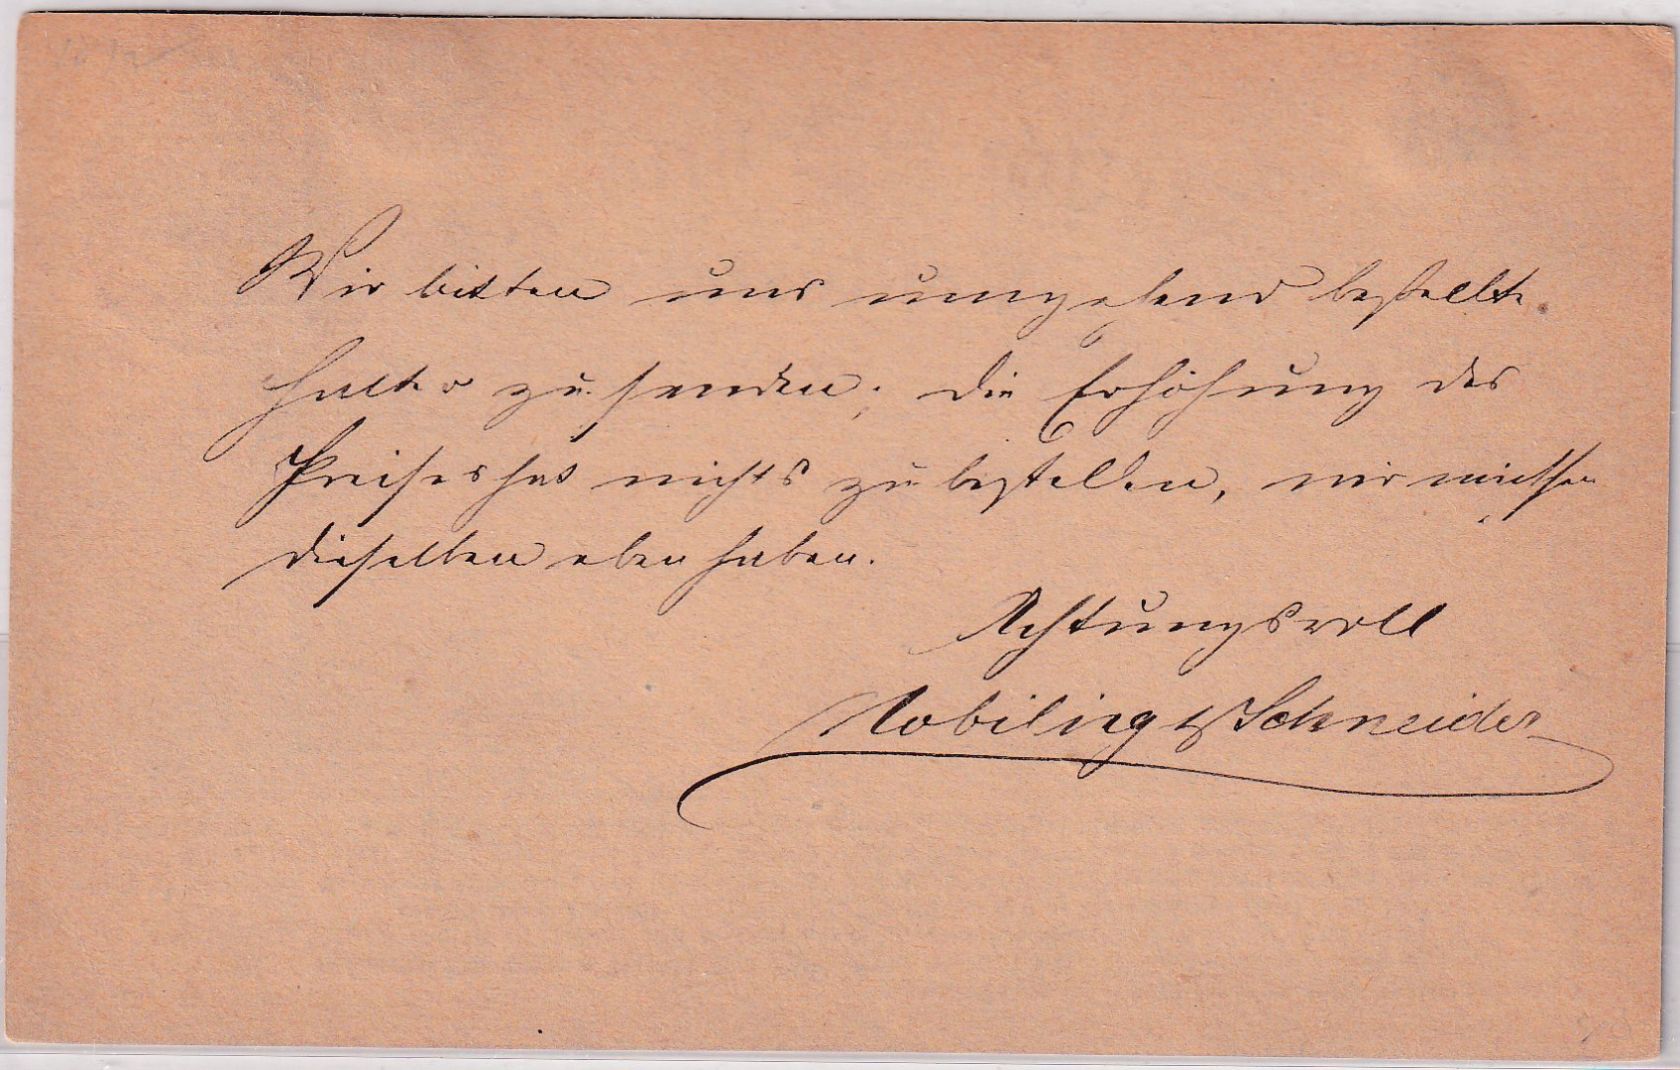 Wir bitten uns umgehend bestellte
Halter zu senden; die Erhöhung des
Preises hat nichts zu bestellen, wir müssen
dieselben eben haben.
Achtungsvoll
Nobiling & Schneider